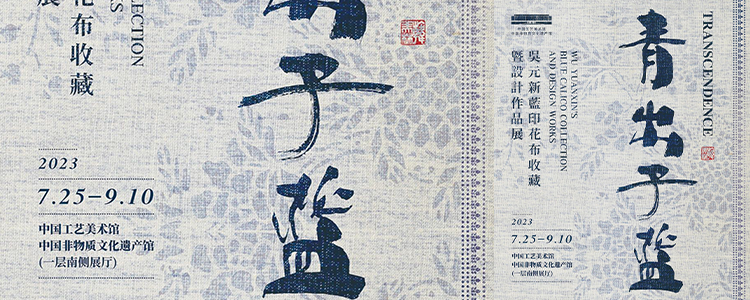 展
花布收藏
LLECTION
于藍
2023
7.25–9.10
中国工艺美术馆
中国非物质文化遗产馆
(一层南侧展厅)
中国工艺美术馆
中国非物质文化遗产馆
TRANSCENDENCE
青出于藍
WU YUANXIN'S
BLUE CALICO COLLECTION
AND DESIGN WORKS
吳元新藍印花布收藏
暨設計作品展
2023
7.25–9.10
中国工艺美术馆
中国非物质文化遗产馆
(一层南侧展厅)